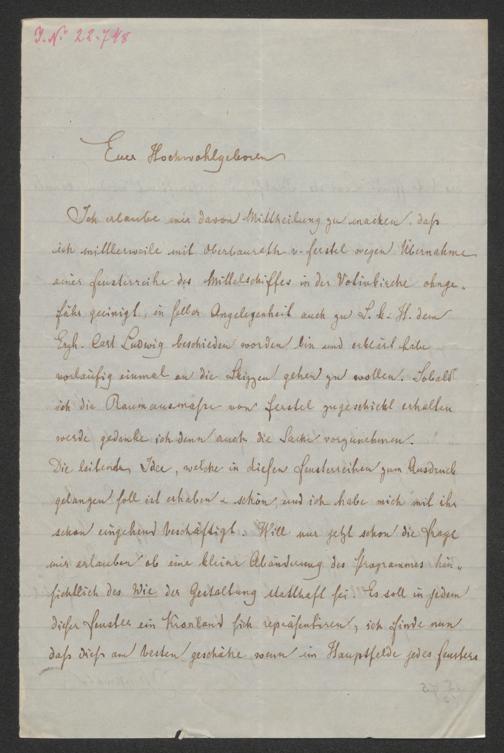 I. N. 22.748
Euer Hochwohlgeboren
Ich erlaube mir davon Mittheilung zu machen, daß
ich mittlerweile mit Oberbaurath v. Ferstel wegen Übernahme
einer Fensterreihe des Mittelschiffes in der Votivkirche ohnge-
fähr geeinigt, in selber Angelegenheit auch zu S. k. H. dem
Erzh. Carl Ludwig beschieden worden bin und erklärt habe
vorläufig einmal an die Skizzen gehen zu wollen. Sobald
ich die Raumausmaße von Ferstel zugeschickt erhalten
werde gedenke ich denn auch die Sache vorzunehmen.
Die leitende Idee, welche in diesen Fensterreihen zum Ausdruck
gelangen soll ist erhaben u schön, und ich habe mich mit ihr
schon eingehend beschäftigt. Will nur jetzt schon die Frage
mir erlauben ob eine kleine Abänderung des Programmes hin-
sichtlich des Wie der Gestaltung statthaft sei. Es soll in jedem
dieser Fenster ein Kronland sich repräsentiren, ich finde nun
daß dieß am besten geschähe wenn im Hauptfelde jedes Fensters